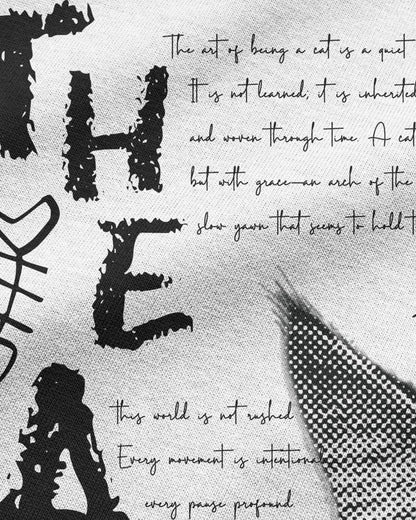 THE
The art of being a cat is a quiet
It is not learned; it is inherited
and woven through time. A cat
but with grace—an arch of the
slow yawn that seems to hold t
A
this world is not rushed
Every movement is intentional
every pause profound